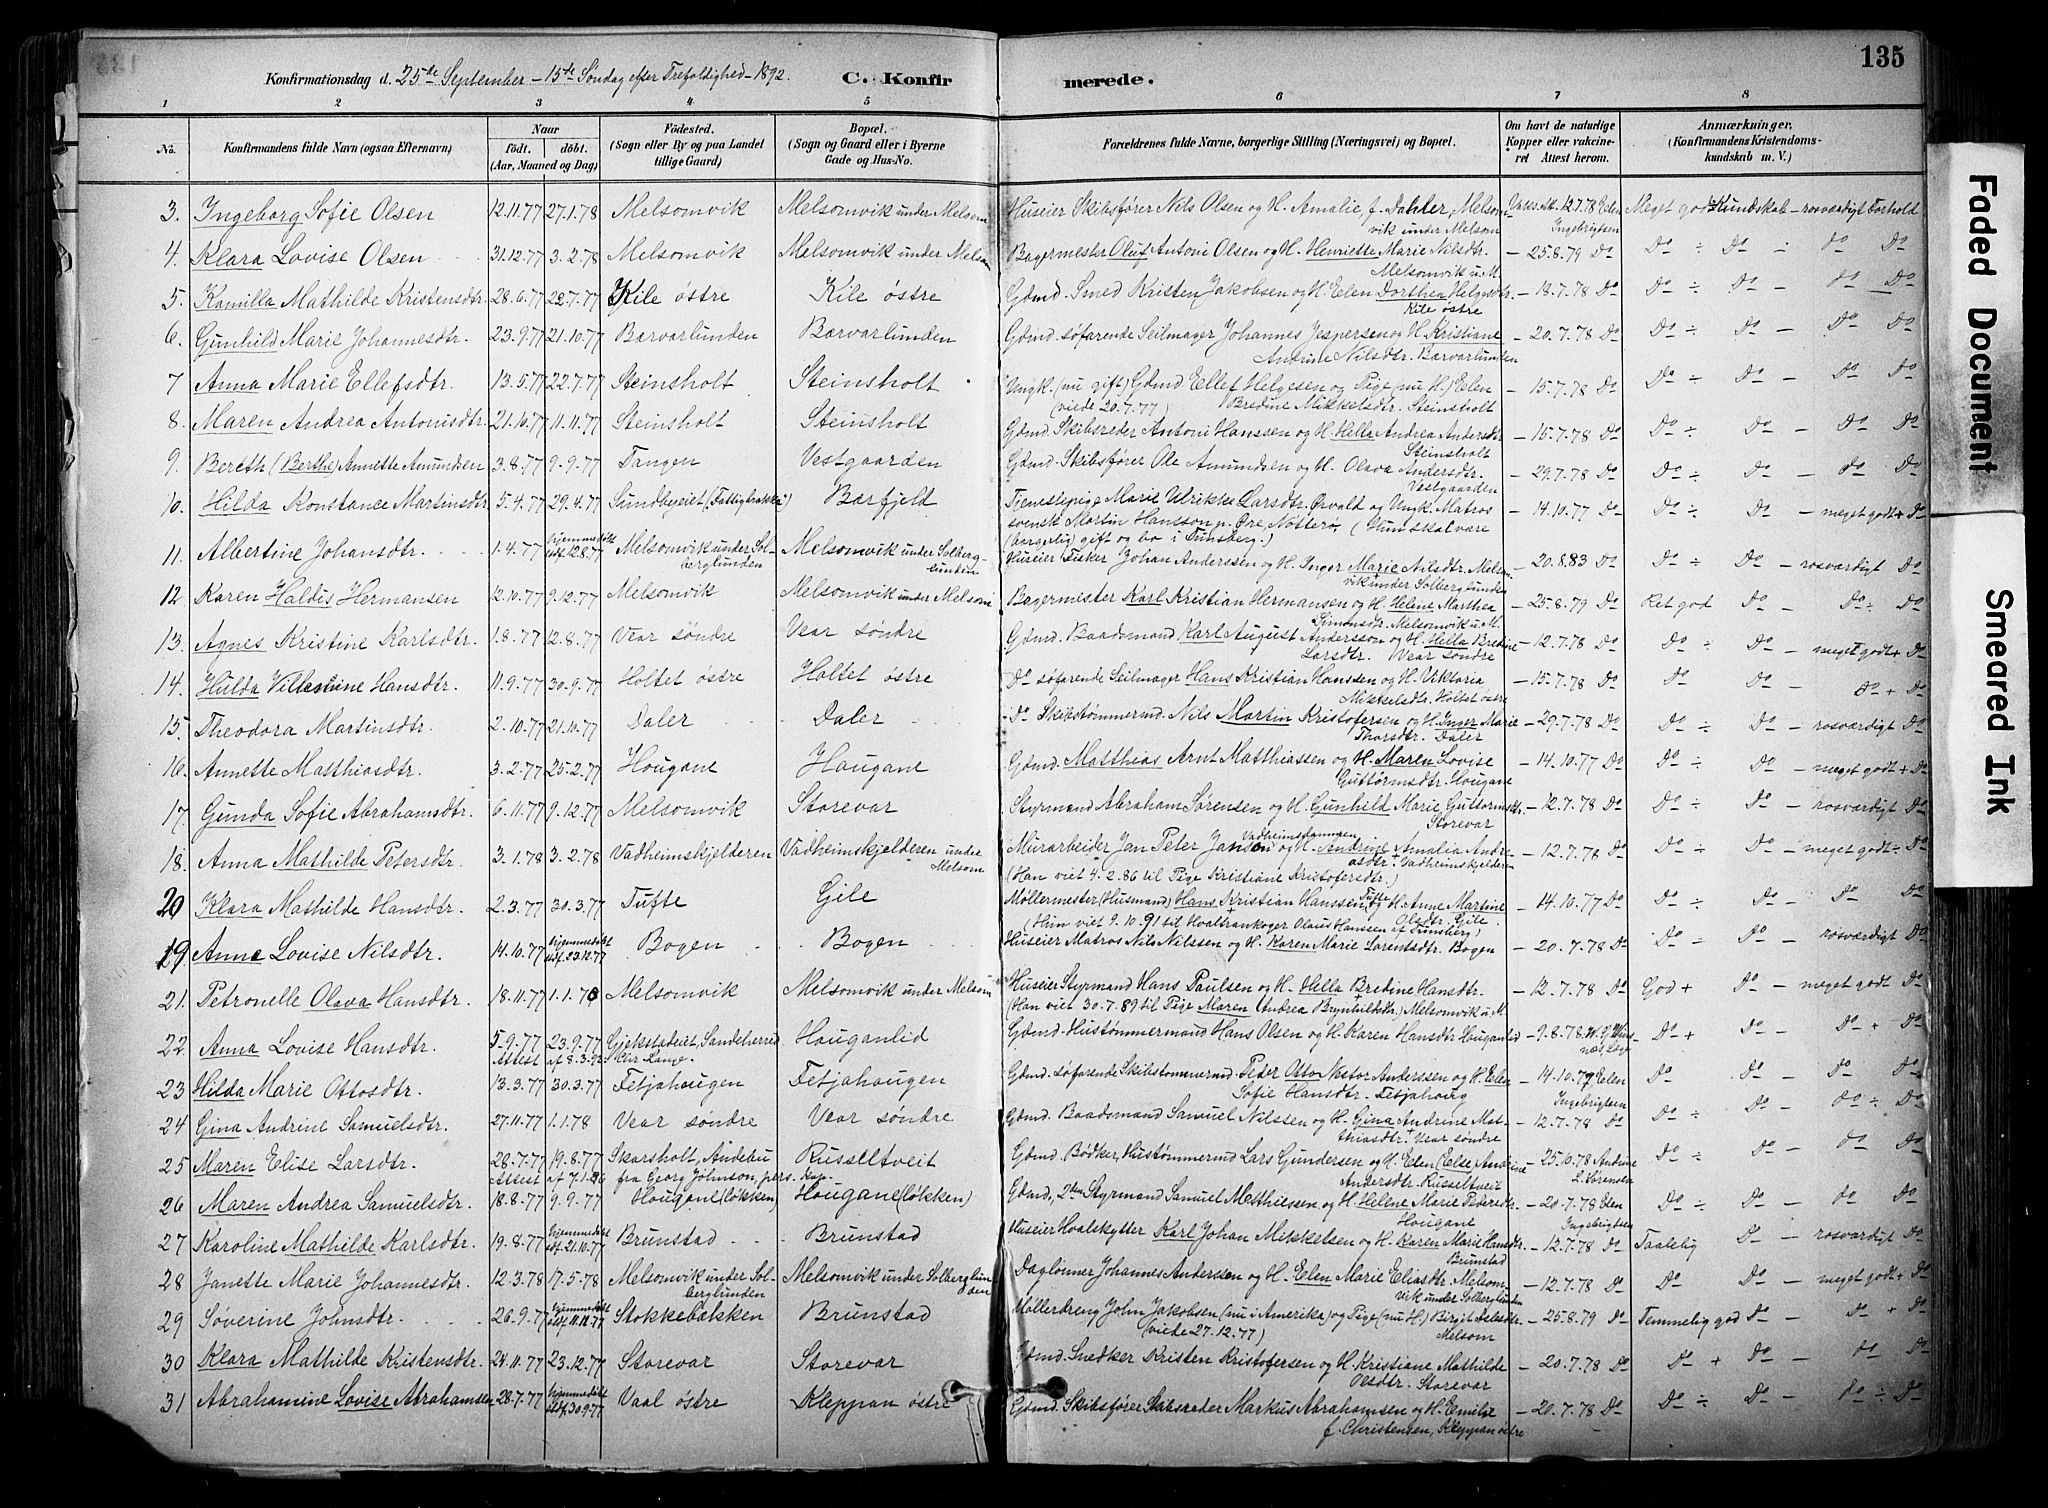 135
Konfirmationsdag d. 25de September - 15de Søndag efter Trefoldighed - 1892. C. Konfirmerede.
1 2 3 4 5 6 7 8
No. Konfirmandens fulde Navn (ogsaa Efternavn) Naar født. døbt. (Aar, Maaned og Dag) Fødested. (Sogn eller By og paa Landet tillige Gaard) Bopæl. (Sogn og Gaard eller i Byerne Gade og Hus-No. Forældrenes fulde Navne, borgerlige Stilling (Næringsvei) og Bopæl. Om havt de naturlige Kopper eller vakcineret Attest herom. Anmærkninger. (Konfirmandens Kristendomskundskab m. V.)
3. Ingeborg Sofie Olsen 12.11.77 27.1.78 Melsomvik Melsomvik under Melsom Huseier Skibsfører Nils Olsen og H. Amalie f. Dahler, Melsomvik under Melsom Vaks. At. 12.7.78 Elen Ingebrigtsen Meget god Kundskab - rosværdigt Forhold
4. Klara Lovise Olsen 31.12.77 3.2.78 Melsomvik Melsomvik under Melsom Bagermester Oluf Antoni Olsen og H. Henriette Marie Nilsdtr. Melsomvik u. M. - 25.8.79 Do Do ÷ Do ÷ Do Do
5. Kamilla Mathilde Kristensdtr. 28.6.77 22.7.77 Kile østre Kile østre Gdmd. Smed Kristen Jakobsen og H. Elen Dorthea Helgesdtr. Kile østre - 19.7.78 Do Do ÷ Do - Do Do
6. Gunhild Marie Johannesdtr. 23.9.77 21.10.77 Barvarlunden Barvarlunden Gdmd. søfarende Seilmager Johannes Jespersen og H. Kristiane Andrine Nilsdtr. Barvarlunden - 20.7.78 Do Do ÷ Do - Do Do
7 Anna Marie Ellefsdtr. 13.5.77 22.7.77 Steinsholt Steinsholt Ungk. (nu gift) Gdmd Ellef Helgesen og Pige (nu H.) Elen (viede 20.7.77) Bredine Mikkelsdtr. Steinsholt - 15.7.78 Do Do ÷ Do - Do Do
8. Maren Andrea Antonisdtr. 21.10.77 11.11.77 Steinsholt Steinsholt Gdmd. Skibsreder Antoni Hanssen og H. Hella Andrea Andersdtr Steinsholt - 15.7.78 Do Do ÷ Do - Do Do
9. Bereth (Berthe) Annette Amundsen 3.8.77 9.9.77 Tangen Vestgaarden Gdmd. Skibsfører Ole Amundsen og H. Olava Andersdtr. Vestgaarden - 29.7.78 Do Do ÷ Do - Do Do
10. Hilda Konstance Martinsdtr. 5.4.77 29.4.77 Sundbyeiet (Fattigbrakka) Barfjeld Tjenestepige Marie Ulrikke Larsdtr. Ørvald og Ungk. Matros svensk Martin Hansson p. Øre, Nøtterø. (Hun skal være (borgerlig) gift og bo i Tunsberg.) - 14.10.77 Do Do ÷ Do - meget godt + Do
11. Albertine Johansdtr. 1.4.77 hjemmedøbt stdf. 12.8.77 Melsomvik under Solberglunden Melsomvik under Solberglunden Huseier Fisker Johan Anderssen og H. Inger Marie Nilsdtr. Melsomvik under Solberglunden - 20.8.83 Do Do ÷ Do - rosværdigt Do
12 Karen Haldis Hermansen 12.10.77 9.12.77 Melsomvik Melsomvik under Melsom Bagermester Karl Kristian Hermansen og H. Helene Marthea Simonsdtr. Melsomvik u. M. - 25.8.79 Do Ret god Do - Do ÷ Do
13. Agnes Kristine Karlsdtr. 1.8.77 12.8.77 Vear søndre Vear søndre Gdmd. Baadsmand Karl August Andersson og H. Hella Bredine Larsdtr. Vear søndre - 12.7.78 Do Do ÷ Do - meget godt + Do
14. Hulda Villastine Hansdtr. 11.9.77 30.9.77 Holtet østre Holtet østre Do søfarende Seilmager Hans Kristian Hanssen og H. Viktoria Mikkelsdtr. Holtet østre - 15.7.78 Do Do Do - Do + Do
15. Theodora Martinsdtr. 2.10.77 21.10.77 Daler Daler Do Skibstømmermd. Nils Martin Kristofersen og H. Inger Marie Thorsdtr. Daler - 29.7.78 Do Do ÷ Do - rosværdigt Do
16. Annette Matthiasdtr. 3.2.77 25.2.77 Hougane Hougane Gdmd. Matthias Arnt Matthiassen og H. Maren Lovise Guttormsdtr. Hougane - 14.10.77 Do Do ÷ Do - meget godt + Do
17. Gunda Sofie Abrahamsdtr. 6.11.77 9.12.77 Melsomvik Storevar Styrmand Abraham Sørensen og H. Gunhild Marie Guttormsdtr. Storevar - 12.7.78 Do Do ÷ Do - rosværdigt Do
18. Anna Mathilde Petersdtr. 3.1.78 3.2.78 Vadheimskjelderen Vadheimskjelderen under Melsom Murarbeider Jan Peter Janson Vadheimsdammen og H. Andrine Amalia Andreasdtr + Vadheimskjelderen (Han viet 4.2.86 til Pige Kristiane Kristofersdtr.) - 12.7.78 Do Do ÷ Do - meget godt ÷ Do
20 Klara Mathilde Hansdtr. 2.3.77 30.3.77 Tufte Gile Møllermester (Husmand) Hans Kristian Hanssen, Tufte og H. Anne Martine Olsdtr. Gile (Hun viet 9.10.91 til Hvaltrankoger Olaus Hanssen af Tunsberg) - 14.10.77 Do Do ÷ Do - Do Do
19. Anna Lovise Nilsdtr. 14.10.77 hjemmedøbt stdf. 23.12.77 Bogen Bogen Huseier Matros Nils Nilssen og H. Karen Marie Lorentsdtr. Bogen - 20.7.78 Do Do ÷ Do - rosværdigt Do
21. Petronelle Olava Hansdtr. 18.11.77 1.1.78 Melsomvik Melsomvik under Melsom Huseier Styrmand Hans Paulsen og H. Hella Bredine Hansdtr. (Han viet 30.7.89 til Pige Maren Andrea Brynhilksdtr.) Melsomvik u. M. - 12.7.78 Do God + Do - meget godt Do
22. Anna Lovise Hansdtr. 5.9.77 23.9.77 Attest af 8.3.92 Gjekstadeiet, Sandeherred Chr. Lange Houganlid Gdmd. Hustømmermand Hans Olsen og H. Karen Hansdtr. Houganlid - 9.8.78 Do + Do - Do + Do
23 Hilda Marie Ottosdtr. 13.3.77 30.3.77 Fetjahaugen Fetjahaugen Gdmd. søfarende Skibstømmermd. Peder Otto Nestor Anderssen og H. Elen Sofie Hansdtr. Fesjahoug - 14.10.77 Elen Ingebrigtsen Do Do - Do Do
24 Gina Andrine Samuelsdtr. 27.11.77 1.1.78 Vear søndre Vear søndre Gdmd. Baadsmand Samuel Nilssen og H. Gina Andrine Matthiasdtr + Vear søndre - 12.7.78 Do Do ÷ Do - Do ÷ Do
25 Maren Elise Larsdtr. 28.7.77 19.8.77 Attest af 7.1.86 Skarsholt, Andebu fra Georg Johnson, pers. Kap. Russeltveit Gdmd. Bødker, Hustømmermd Lars Gundersen og H. Elen (Else) Andrine Andersdtr. Russeltveit - 25.10.78 Andrine L. Sørensen Do ÷ Do - Do Do
26 Maren Andrea Samuelsdtr. 18.8.77 9.9.77 Hougane (løkken) Hougane (løkken) Gdmd., 2den Styrmand Samuel Matthiessen og H. Helene Marie Pedersdtr. Hougane - 20.7.78 Elen Ingebrigtsen Do ÷ Do - Do Do
27 Karoline Mathilde Karlsdtr. 19.8.77 hjemmedøbt stdf. 21.10.77 Brunstad Brunstad Huseier Hvalskytter Karl Johan Mikkelsen og H. Karen Marie Hansdtr. Brunstad - 12.7.78 Do Taalelig Do - rosværdigt Do
28 Janette Marie Johannesdtr. 12.3.78 17.5.78 Melsomvik under Solberglunden Melsomvik under Solberglunden Daglønner Johannes Anderssen og H. Elen Marie Eliasdtr. Melsomvik under Solberglunden - 12.7.78 Do Do Do - meget godt + Do
29 Søverine Johnsdtr. 26.9.77 hjemmedøbt stdf. 11.10.77 Stokkebakken Brunstad Møllerdreng John Jakobsen (nu i Amerika) og Pige (nu H.) Birgit Aslesdtr. (viede 27.12.77) Melsom - 25.8.79 Do Temmelig god Do - Do + Do
30 Klara Mathilde Kristensdtr. 24.11.77 23.12.77 Storevar Storevar Gdmd. Snedker Kristen Kristofersen og H. Kristiane Mathilde Olsdtr. Storevar - 20.7.78 Do Do + Do - Do Do
31 Abrahamine Lovise Abrahamsen 28.7.77 hjemmedøbt stdf. 30.9.77 Vaal østre Kleppan østre Gdmd. Skibsfører Skibsreder Markus Abrahamsen og H. Emilie f. Christensen, Kleppan østre - 20.7.78 Do Do ÷ Do - Do ÷ Do
Faded Document
Smeared Ink